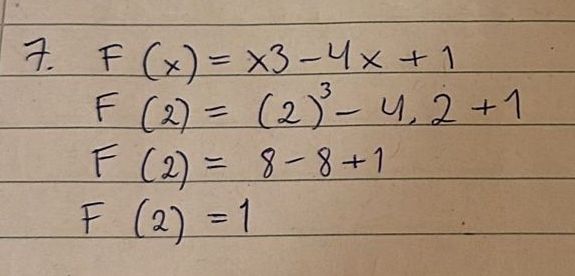 7. F (x) = x3 - 4x + 1
F (2) = (2)³ - 4. 2 + 1
F (2) = 8 - 8 + 1
F (2) = 1